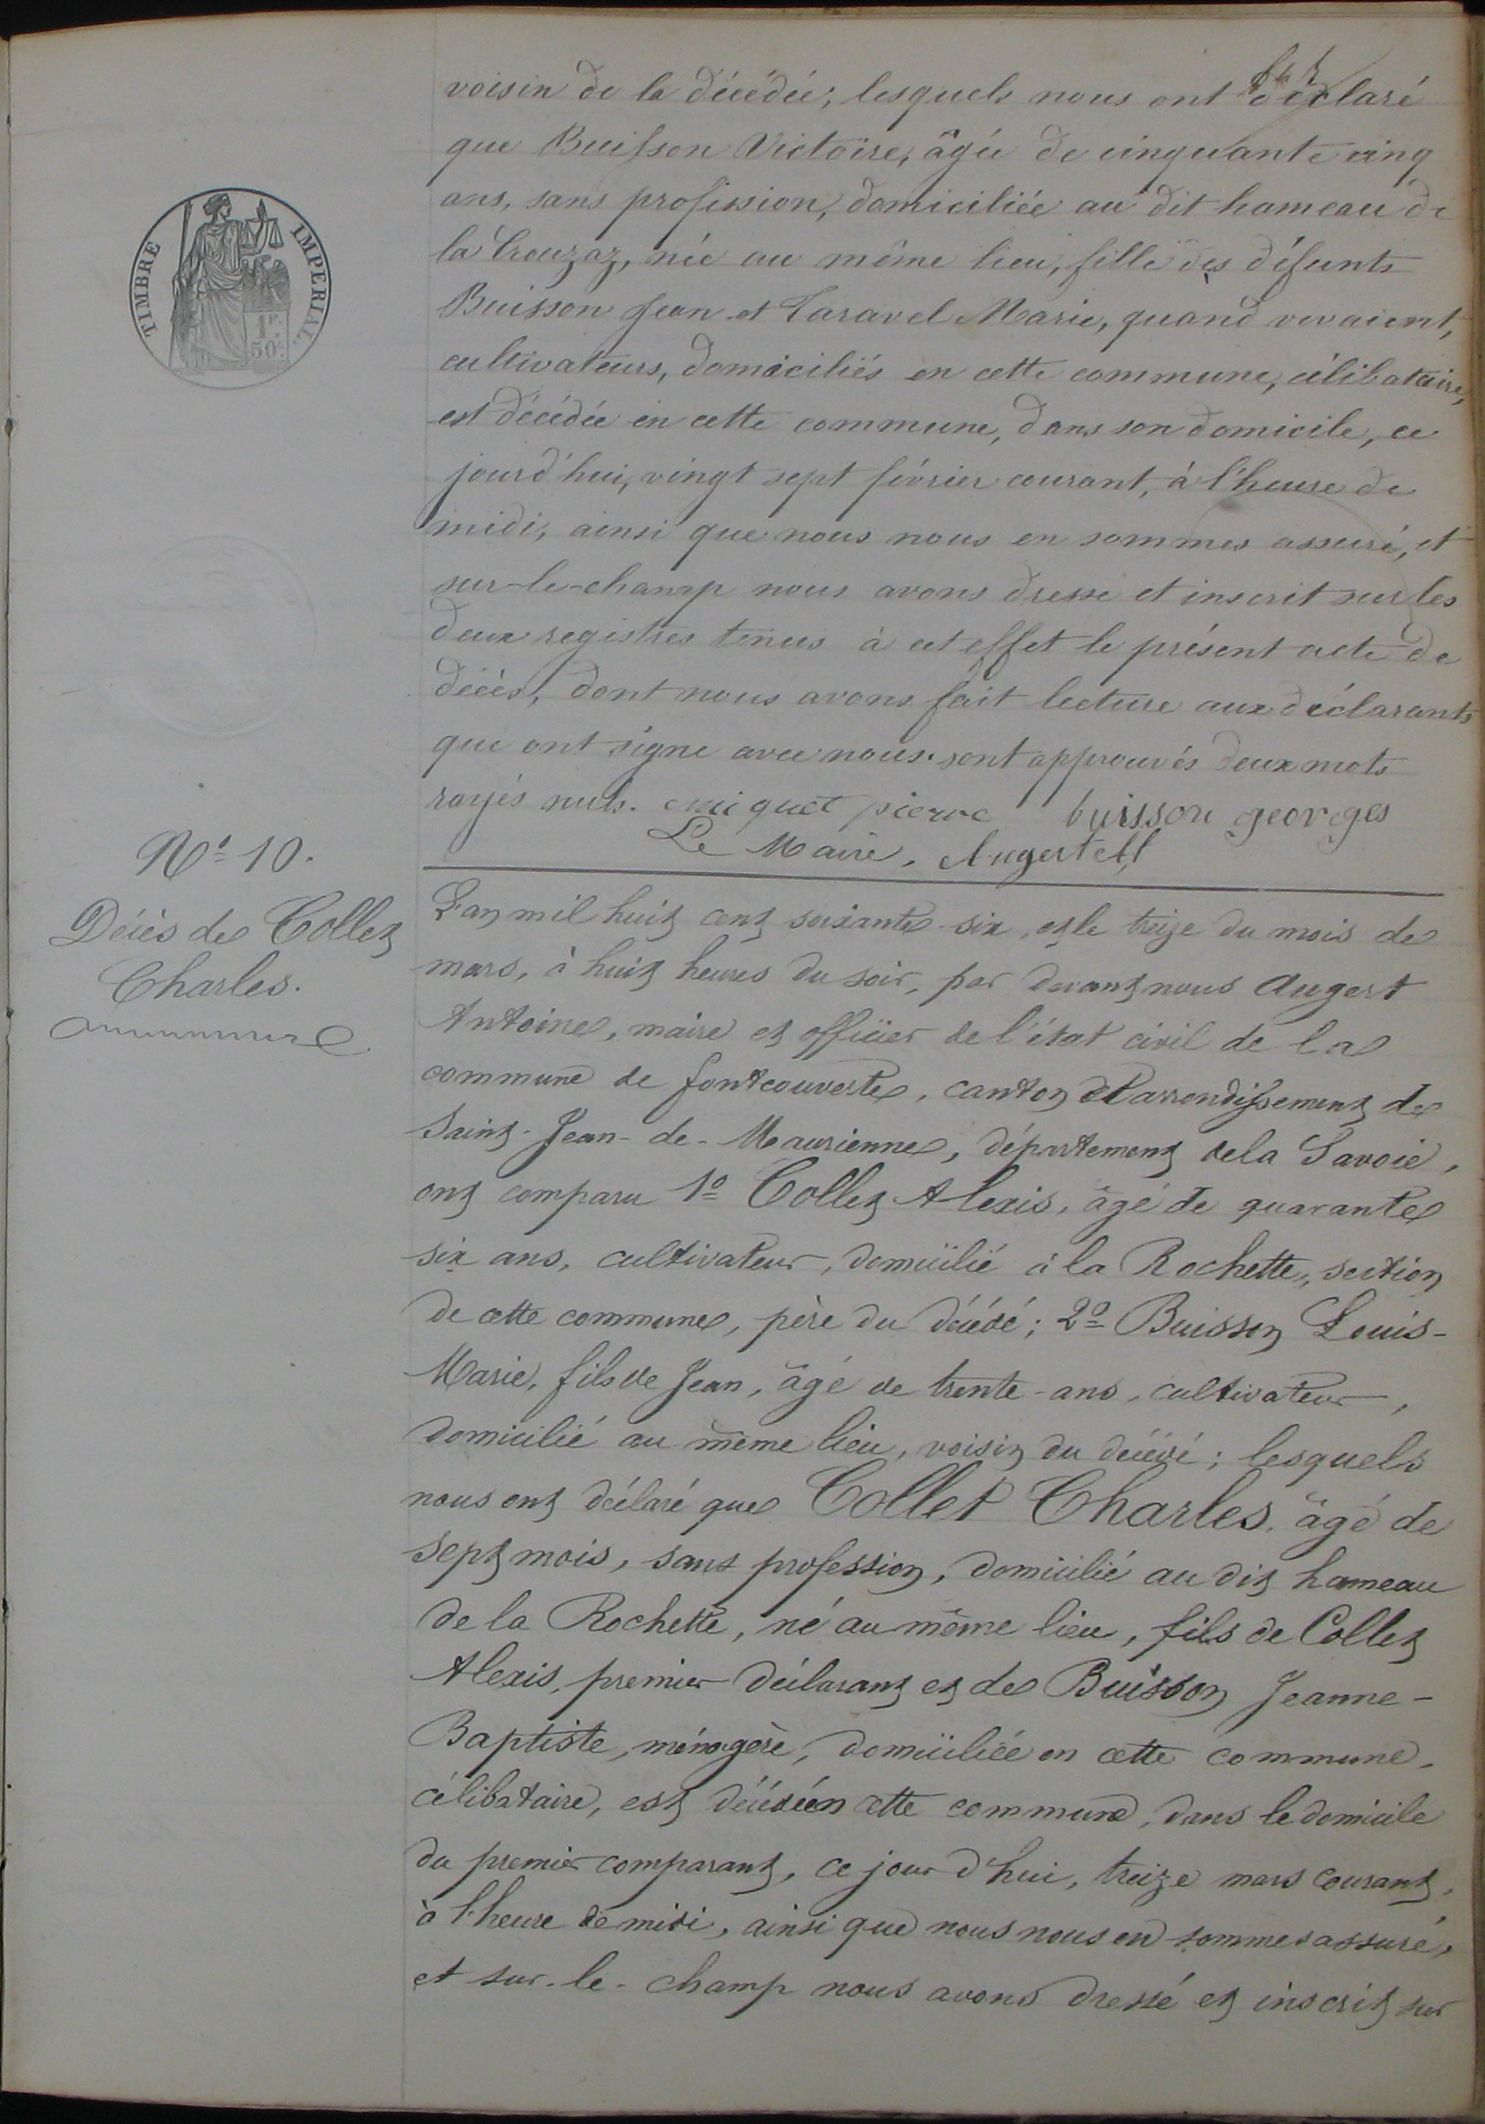 voisin de la décédée, lesquels nous ont déclaré
que Buisson Victoire, âgée de cinquante cinq
ans, sans profession, domiciliée au dit hameau de
la Crouzaz, née au même lieu, fille des défunts
Buisson Jean et Taravel Marie, quand vivaient,
cultivateurs, domiciliés en cette commune, célibataire,
est décédée en cette commune, dans son domicile, ce
jourd'hui, vingt sept février courant, à l'heure de
midi, ainsi que nous nous en sommes assuré, et
sur-le-champ nous avons dressé et inscrit sur les
deux registres tenus à cet effet le présent acte de
décès, dont nous avons fait lecture aux déclarants
qui ont signé avec nous. sont approuvés deux mots
rayés nuls. miquet pierre buisson georges
Le Maire, Augert Att
TIMBRE IMPERIAL
1F.
50C.
Nº 10.
Décès de Collet
Charles.
L'an mil huit cent soixante-six, et le treize du mois de
mars, à huit heures du soir, par devant nous Augert
Antoine, maire et officier de l'état civil de la
commune de fontcouverte, canton et arrondissement de
Saint-Jean-de-Maurienne, département de la Savoie,
ont comparu 1º Collet Alexis, âgé de quarante
six ans, cultivateur, domicilié à la Rochette, section
de cette commune, père du décédé; 2º Buisson Louis-
Marie, fils de Jean, âgé de trente-ans, cultivateur,
domicilié au même lieu, voisin du décédé; lesquels
nous ont déclaré que Collet Charles, âgé de
sept mois, sans profession, domicilié au dit hameau
de la Rochette, né au même lieu, fils de Collet
Alexis, premier déclarant et de Buisson Jeanne-
Baptiste, ménagère, domiciliée en cette commune.
célibataire, est décédé en cette commune, dans le domicile
du premier comparant, ce jour d'hui, treize mars courant,
à l'heure de midi, ainsi que nous nous en sommes assuré,
et sur-le-champ nous avons dressé et inscrit sur